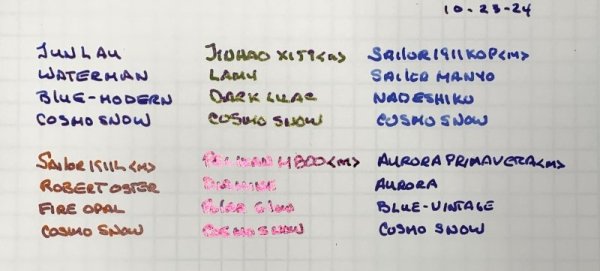 10-23-24
JUN LAU
WATERMAN
BLUE-MODERN
COSMO SNOW
JINHAO X159<M>
LAMY
DARK LILAC
COSMO SNOW
SAILOR 1911 KOP<M>
SAILOR MANYO
NADESHIKO
COSMO SNOW
SAILOR 1911L<M>
ROBERT OSTER
FIRE OPAL
COSMO SNOW
PELIKAN M800<M>
DIAMINE
POLAR GLOW
COSMO SNOW
AURORA PRIMAVERA<M>
AURORA
BLUE-VINTAGE
COSMO SNOW